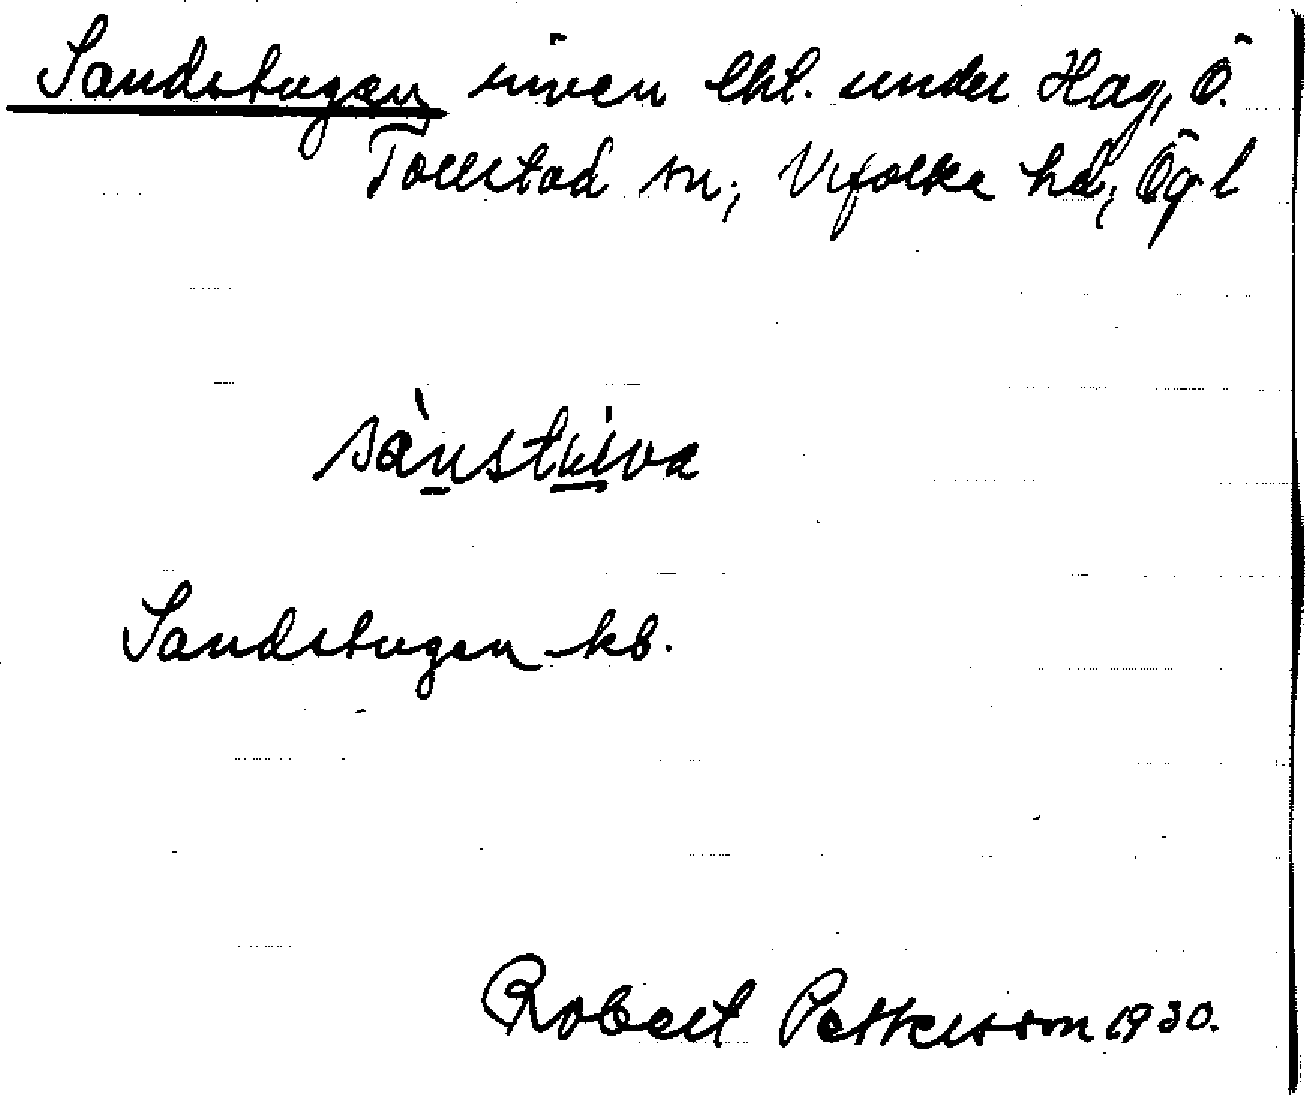 Sandstugen riven lht. under Hag, Ö.
Tollstad sn, Vifolka hd, Ögl
sànstuva
Sandstugen kb.
Robert Pettersson 1930.